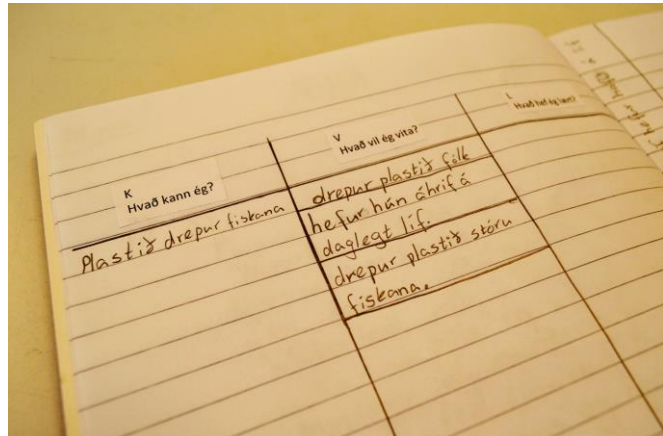 K
Hvað kann ég?
V
Hvað vil ég vita?
L
Hvað hef ég lært?
Plastið drepur fiskana
drepur plastið fólk
hefur hán áhrif á
daglegt líf.
drepur plastið stóru
fiskana.